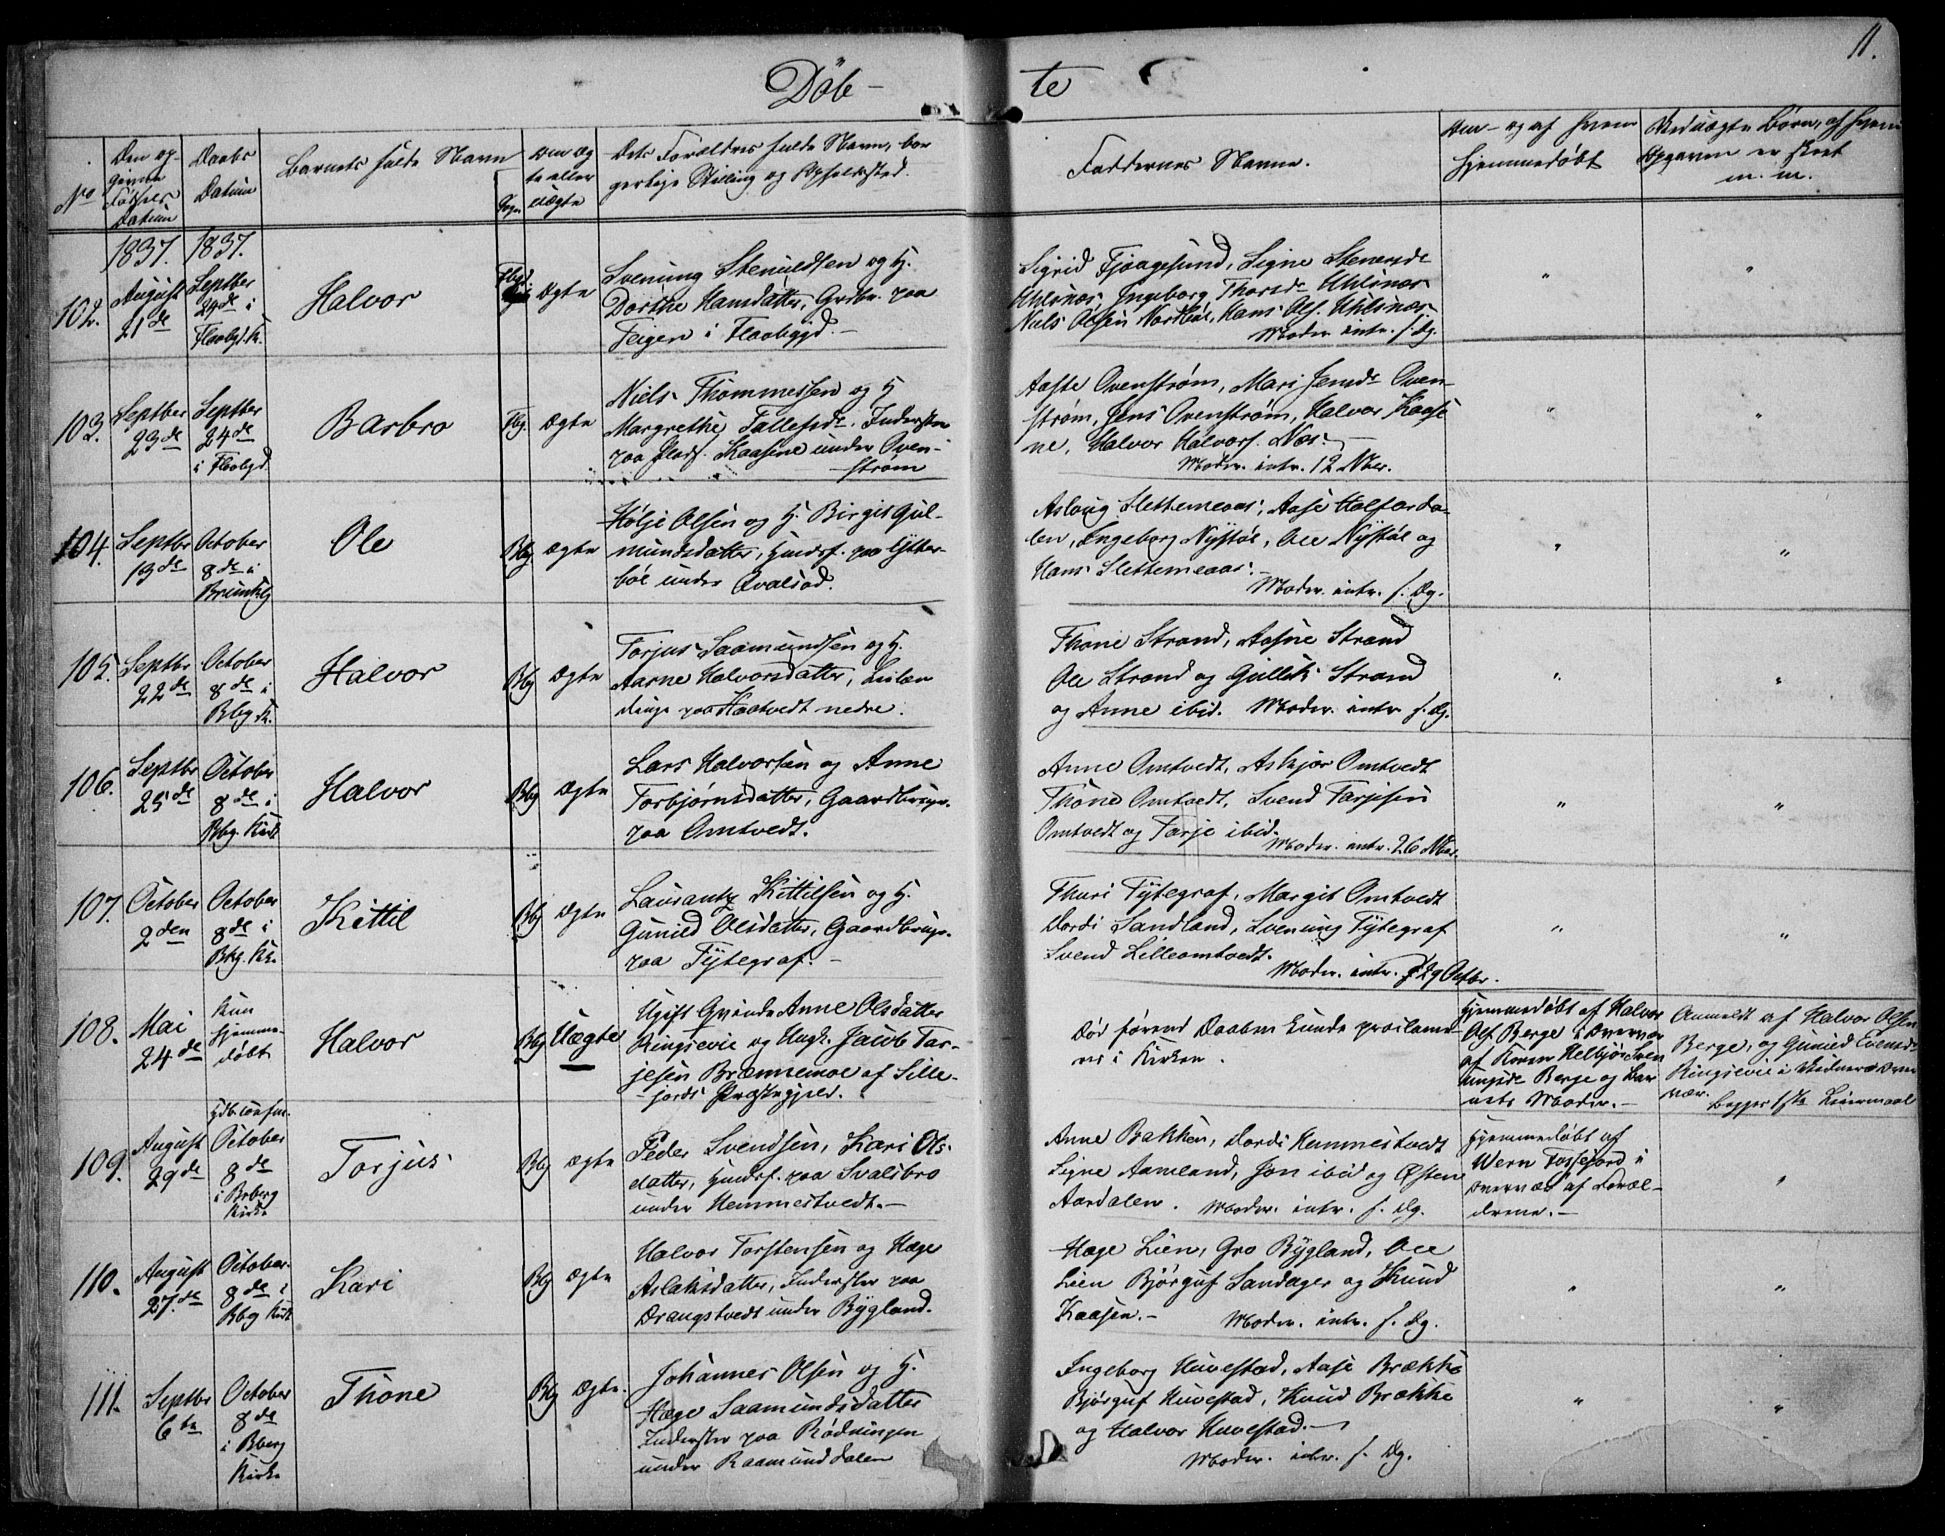 Döb-
te
11.
No
Den op-
givne
Fødsels
Datum
Daabs
Datum
Barnets fulde Navn
Sogn
Om æg
te eller
uægte
Dets Forældres fulde Navn, bor
gerlige Stilling og Opholdssted.
Faddernes Navne.
Om- og af hvem
hjemmedøbt
Ved uægte Børn, af hvem
Opgaven er skeet
m. m.
102.
1837.
August
21de
1837.
Septber
24de i
Flaabygd. K.
Halvor
Ægte
Svenung Stenuldsen og H.
Dorthe Hansdatter, Grdbr. paa
Feigen i Flaabygd.-
Sigrid Fjaagesund, Signe Stenersdr
Uhlsnæs, Ingeborg Thorsdr Uhlsnæs
Niels Olsen Nordbøe, Hans Ols. Uhlsnæs
Moder. intr. s. Dg.
103.
Septber
23de
Septber
24de
i Flabygd
Barbro
Fbg.
Ægte
Niels Thommessen og H
Margrethe Tallefsdr. Inderster
paa Plads. Kaasene under Oven-
strøm
Aaste Ovenstrøm, Mari Jensdr Oven-
strøm, Jens Ovenstrøm, Halvor Kaase
ne, Halvor Halvors. Næs.
Moder. intr. 12 Nber.
104.
Septbr
13de
October
8de i
Brunkbg
Ole
Bbg
Ægte
Hølje Olsen og H. Birgit Gul-
mundsdatter, Huusf. paa Ytter-
bøe under Qvalsød.
Aslaug Slettemeaas, Aase Halfarda-
len, Ingeborg Nystøl, Ole Nystøl og
Hans Slettemeaas.-
Moder. intr. s. Dg.
105.
Septbr
22de
October
8de i
Bbg K.
Halvor
Bbg
Ægte
Torjus Saamundsen og H.
Aarne Halvorsdatter, Leilæn
dinge paa Haatvedt nedre.
Thone Strand, Aasne Strand
Ole Strand og Gullik Strand
og Anne ibid. Moder. intr. s. Dg.
106.
Septbr
25de
October
8de i
Bbg. Kirk
Halvor
Bbg
Ægte
Lars Halvorsen og Anne
Torbjørnsdatter, Gaardbruger.
paa Omtvedt.
Anne Omtvedt, Askjær Omtvedt
Thone Omtvedt, Svend Tarjesen
Omtvedt og Tarje ibid.
Moder. intr. 26 Nber.
107.
October
2den
October
8de i
Bbg. Kk.
Kittil
Bbg
Ægte
Laurantz Kittilsen og H.
Gunild Olsdatter, Gaardbruger.
paa Tytegraf.-
Thuri Tytegraf, Margit Omtvedt
Dordi Sandland, Svenung Tytegraf
Svend Lilleomtvedt.
Moder. intr. 29 Octbr.
108.
Mai
24de
Kun
hjemme-
døbt
Halvor
Bbg
Uægte
Ugift Qvinde Anne Olsdatter
Ringsevie og Ungk. Jacob Tar-
jesen Brænnemoe af Sille-
jords Præstegjeld.
Død førend Daaben kunde proclame-
res i Kirken.
Hjemmedøbt af Halvor
Ols. Berge i Overvær
af Koren Helbjør Sven
ungsdr Berge og Bar
nets Moder.-
Anmeldt af Halvor Olsen
Berge, og Gunild Evensdr
Ringsevie i Vidneres Over
vær.
Begges 1ste Leiermaal
109.
August
29de
Hdb. confir.
October
8de
i Brberg
Kirke
Torjus
Bbg
Ægte
Peder Svendsen, Kari Ols-
datter, Huusf. paa Svalsbro
under Hemmestvedt.-
Anne Bakken, Dordi Hemmestvedt
Signe Aamland, Jon ibid og Østen
Aardalen. Moder. intr. s. Dg.
Hjemmedøbt af
Wern Fossefjord i
Overvær af Foræl-
drene.-
110.
August
27.de
October.
8de i
Bbg Kirk
Kari
Bbg
Ægte
Halvor Torstensen og Hæge
Aslaksdatter, Inderster paa
Drangstvedt under Bygland.
Hæge Lien, Gro Bygland, Ole
Lien Bjørguf Sandager og Knud
Kaasen.-
Moder. intr. s. Dg.
111.
Septbr
6te
October
8de
i Bberg
Kirke
Thone
Bbg
Ægte.
Johannes Olsen og H.
Hæge Saamundsdatter
Inderster paa Rødningen
under Raamunddalen
Ingeborg Huvestad, Aase Brække
Bjørguf Huvestad, Knud Brække
og Halvor Huvestad.-
Moder. intr. s. Dg.